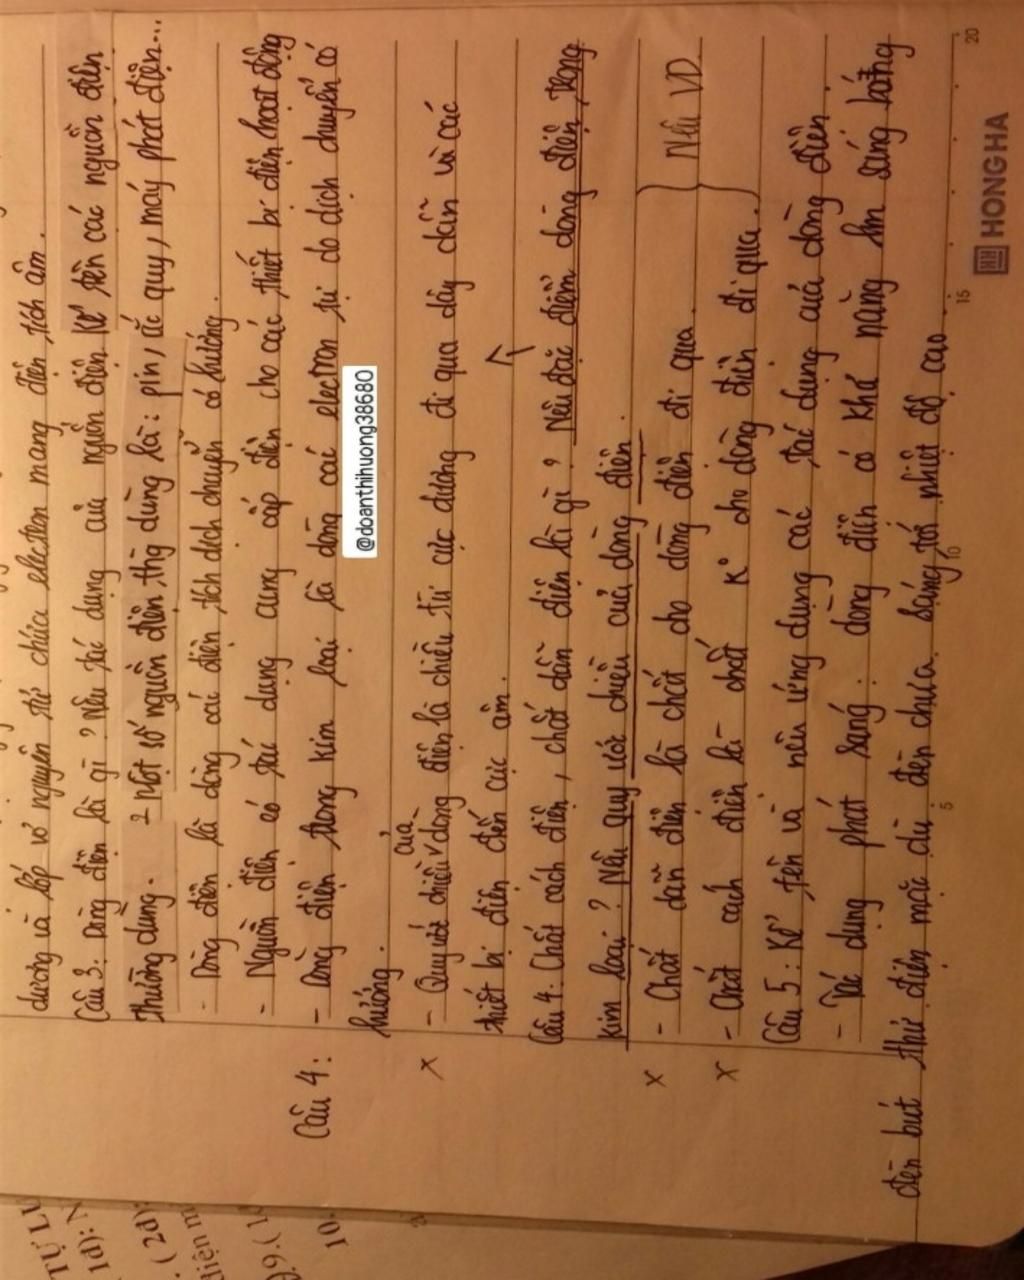 dương và lớp vỏ nguyên tử chứa electron mang điện tích âm.
Câu 3: Dòng điện là gì? Nêu tác dụng của nguồn điện. Kể tên các nguồn điện
thường dùng. 2 Một số nguồn điện thg dùng là: pin, ắc quy, máy phát điện...
- Dòng điện là dòng các điện tích dịch chuyển có hướng.
- Nguồn điện có tác dụng cung cấp điện cho các thiết bị điện hoạt động
Câu 4: - Dòng điện trong kim loại là dòng các electron tự do dịch chuyển có
hướng.
@doanthihuong38680
x - Quy ước chiều của dòng điện là chiều từ cực dương đi qua dây dẫn và các
thiết bị điện đến cực âm.
Câu 4: Chất cách điện, chất dẫn điện là gì? Nêu đặc điểm dòng điện trong
kim loại? Nêu quy ước chiều của dòng điện.
x - Chất dẫn điện là chất cho dòng điện đi qua.
x - Chất cách điện là chất K° cho dòng điện đi qua.
Nêu VD
Câu 5: Kể tên và nêu ứng dụng các tác dụng của dòng điện.
- Tác dụng phát sáng: dòng điện có khả năng làm sáng bóng
đèn bút thử điện mặc dù đèn chưa sáng tới nhiệt độ cao
5
10
15
20
HONG HA
TỰ LU
1đ): N
. (2đ):
điện m
9.(1đ
10.